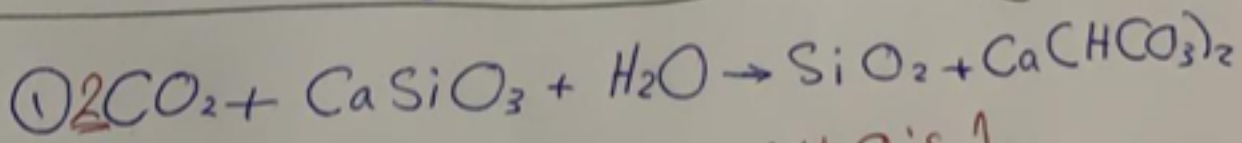 ①2CO₂+ CaSiO₃ + H₂O → SiO₂ + Ca(HCO₃)₂